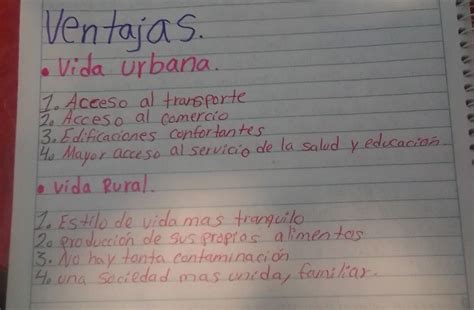 Ventajas.
• Vida Urbana.
1. Acceso al transporte
2. Acceso al comercio
3. Edificaciones confortantes
4. Mayor acceso al servicio de la salud y educación.
• Vida Rural.
1. Estilo de vida mas tranquilo
2. producción de sus propios alimentos
3. No hay tanta contaminación
4. una sociedad mas unida, familiar.